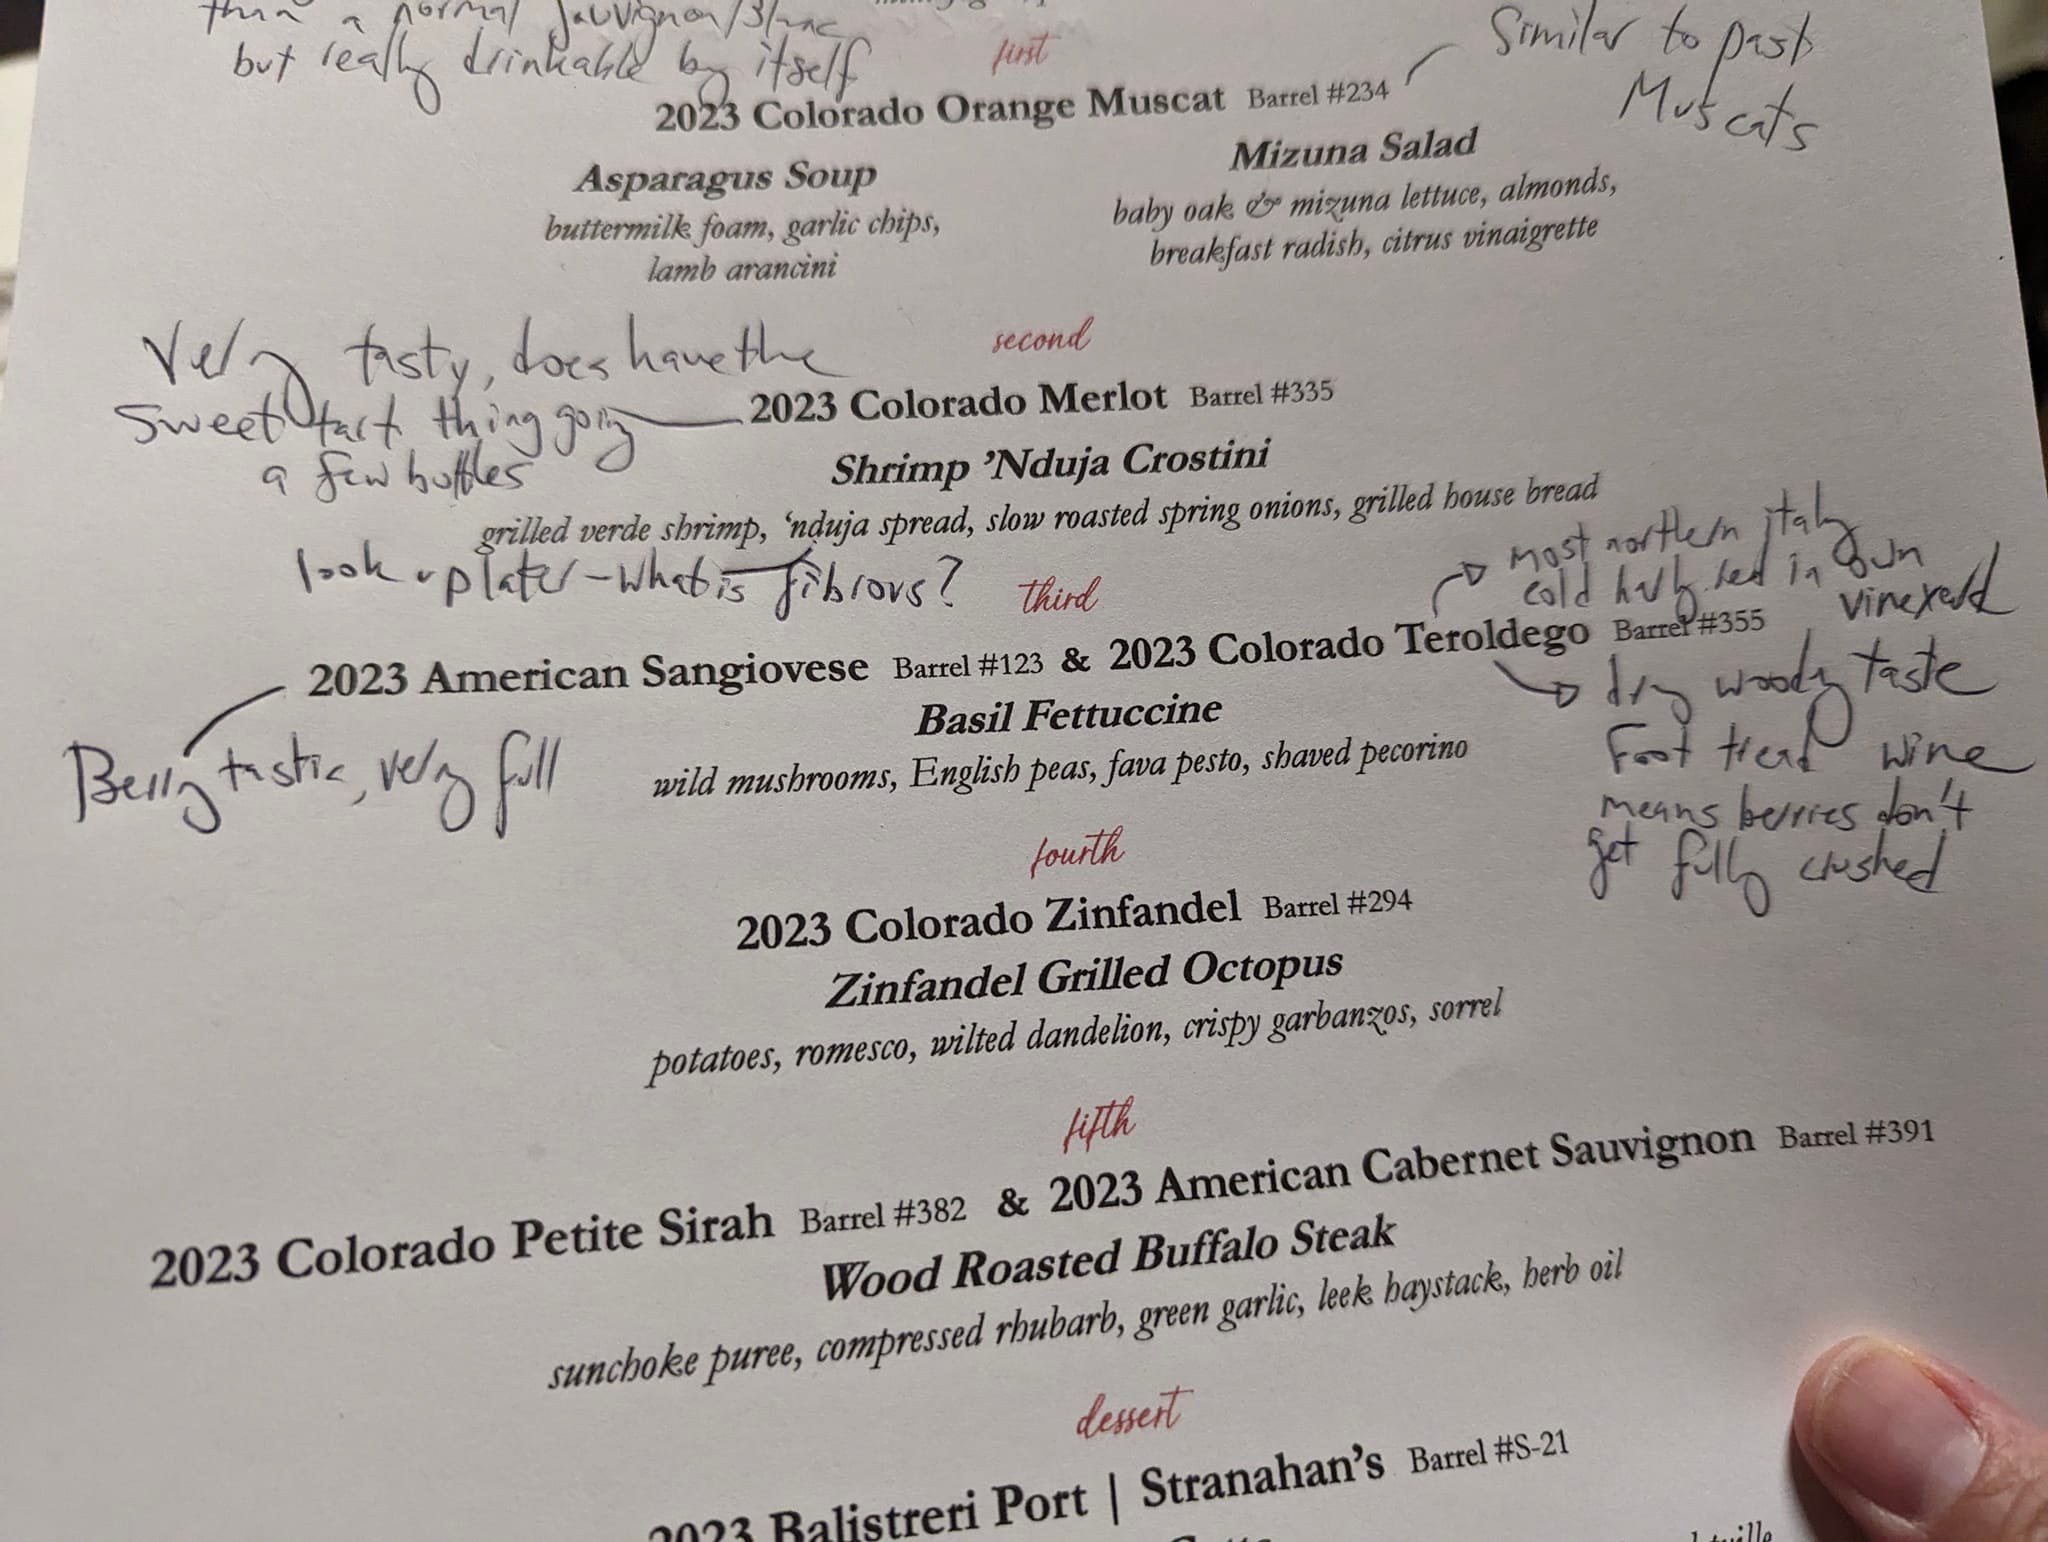 than a normal Sauvignon Blanc
but really drinkable by itself
first
2023 Colorado Orange Muscat Barrel #234
Similar to past
Muscats
Asparagus Soup
buttermilk foam, garlic chips,
lamb arancini
Mizuna Salad
baby oak & mizuna lettuce, almonds,
breakfast radish, citrus vinaigrette
second
Very tasty, does have the
sweet tart thing going
a few bottles
2023 Colorado Merlot Barrel #335
Shrimp ’Nduja Crostini
grilled verde shrimp, ‘nduja spread, slow roasted spring onions, grilled house bread
look up later - what is fibrovs?
third
most northern italy
cold in own
vineyard
2023 American Sangiovese Barrel #123 & 2023 Colorado Teroldego Barrel #355
Berry tastic, very full
Basil Fettuccine
wild mushrooms, English peas, fava pesto, shaved pecorino
dry woody taste
Foot tread wine
means berries don't
get fully crushed
fourth
2023 Colorado Zinfandel Barrel #294
Zinfandel Grilled Octopus
potatoes, romesco, wilted dandelion, crispy garbanzos, sorrel
fifth
2023 Colorado Petite Sirah Barrel #382 & 2023 American Cabernet Sauvignon Barrel #391
Wood Roasted Buffalo Steak
sunchoke puree, compressed rhubarb, green garlic, leek haystack, herb oil
dessert
2023 Balistreri Port | Stranahan’s Barrel #S-21